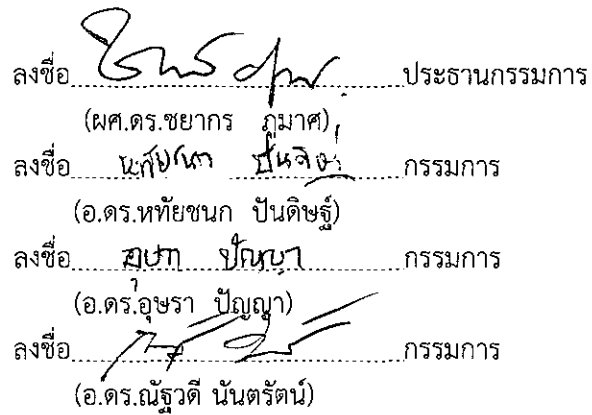 ลงชื่อ ประธานกรรมการ
(ผศ.ดร.ชยากร ภูมาศ)
ลงชื่อ กรรมการ
(อ.ดร.หทัยชนก ปันดิษฐ์)
ลงชื่อ อุษรา ปัญญา กรรมการ
(อ.ดร.อุษรา ปัญญา)
ลงชื่อ กรรมการ
(อ.ดร.ณัฐวดี นันตรัตน์)